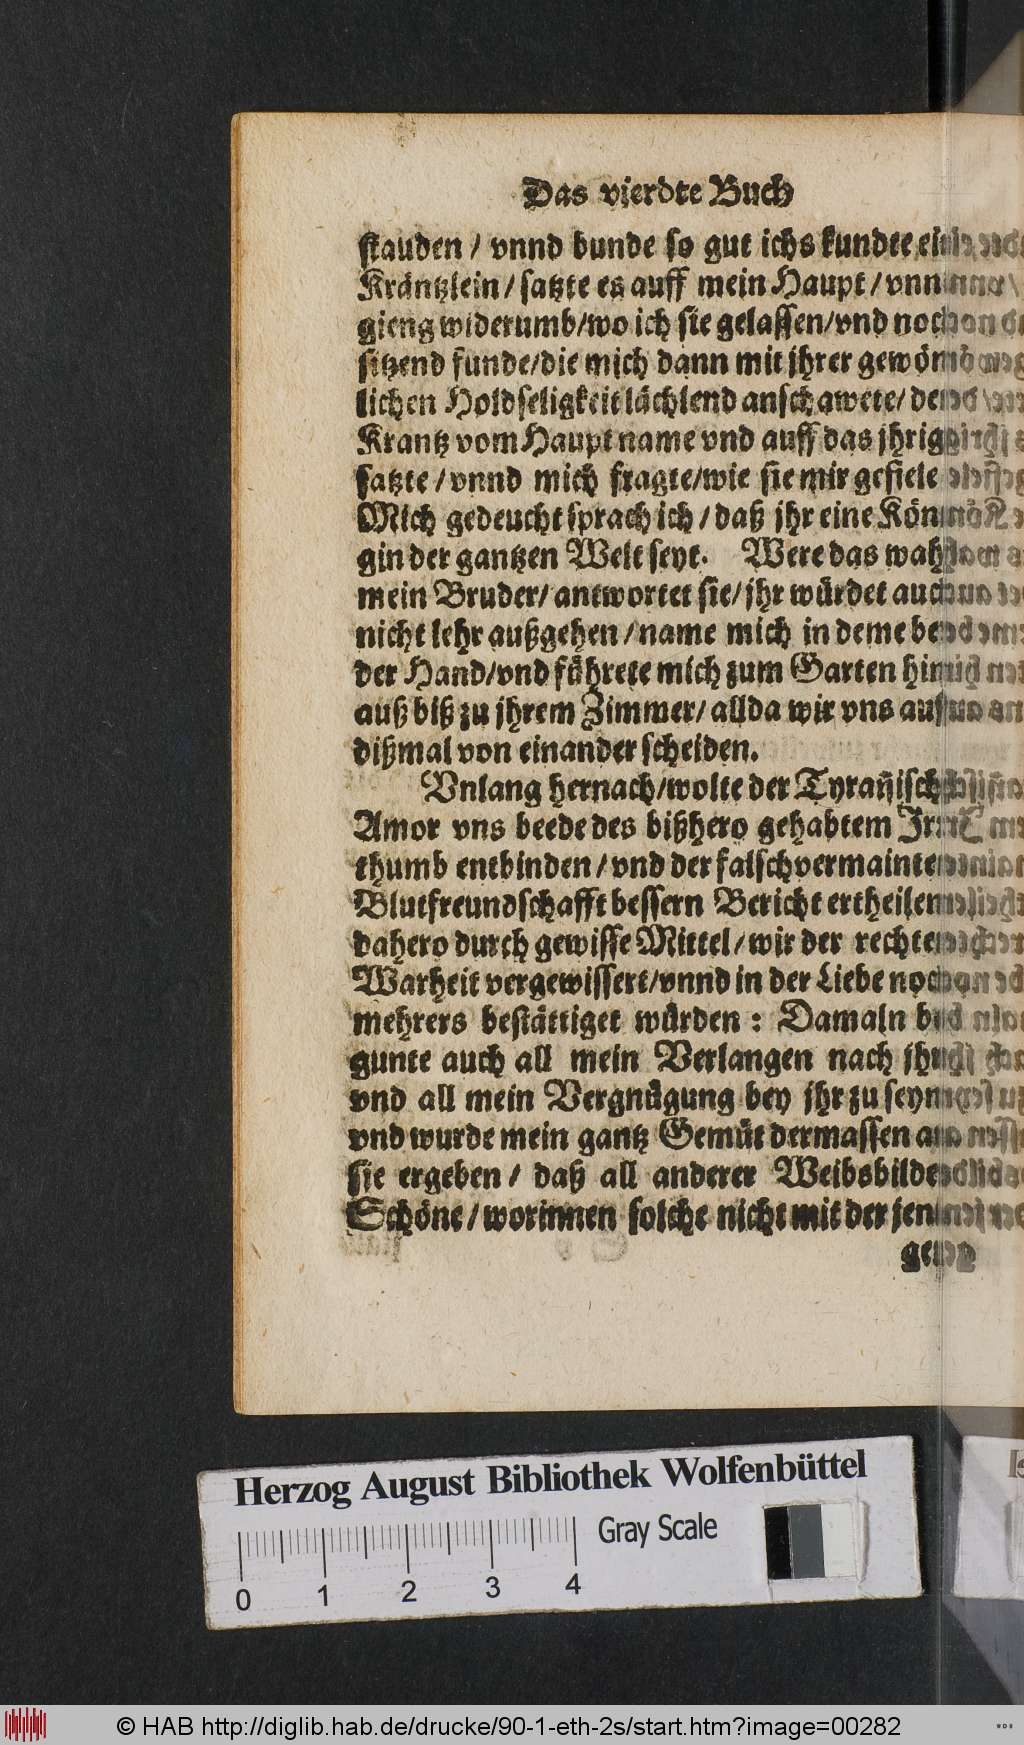 Das vierdte Buch
stauden / vnnd bunde so gut ichs kundte ein
Kräntzlein / satzte es auff mein Haupt / vnn
gieng widerumb/wo ich sie gelassen/vnd noch
sitzend funde/die mich dann mit jhrer gewöm
lichen Holdseligkeit lächlend anschawete/ den
Krantz vom Haupt name vnd auff das jhrig
satzte / vnnd mich fragte/wie sie mir gefiele
Mich gedeucht sprach ich / daß jhr eine Kön
gin der gantzen Welt seyt. Were das wah
mein Bruder/ antwortet sie/ jhr würdet auch
nicht lehr außgehen / name mich in deme bey
der Hand/vnd führete mich zum Garten hin
auß biß zu jhrem Zimmer/ allda wir vns auf
dißmal von einander scheiden.
Vnlang hernach/wolte der Tyrañisch
Amor vns beede des bißhero gehabtem Irr
thumb entbinden / vnd der falschvermainten
Blutfreundschafft bessern Bericht ertheilen
dahero durch gewisse Mittel/ wir der rechten
Warheit vergewissert/vnnd in der Liebe noch
mehrers bestättiget würden : Damaln be
gunte auch all mein Verlangen nach jhr
vnd all mein Vergnügung bey jhr zu seyn
vnd wurde mein gantz Gemüt dermassen an
sie ergeben / daß all anderer Weibsbilder
Schöne / worinnen solche nicht mit der jeni
gen
Herzog August Bibliothek Wolfenbüttel
Gray Scale
0 1 2 3 4
© HAB http://diglib.hab.de/drucke/90-1-eth-2s/start.htm?image=00282